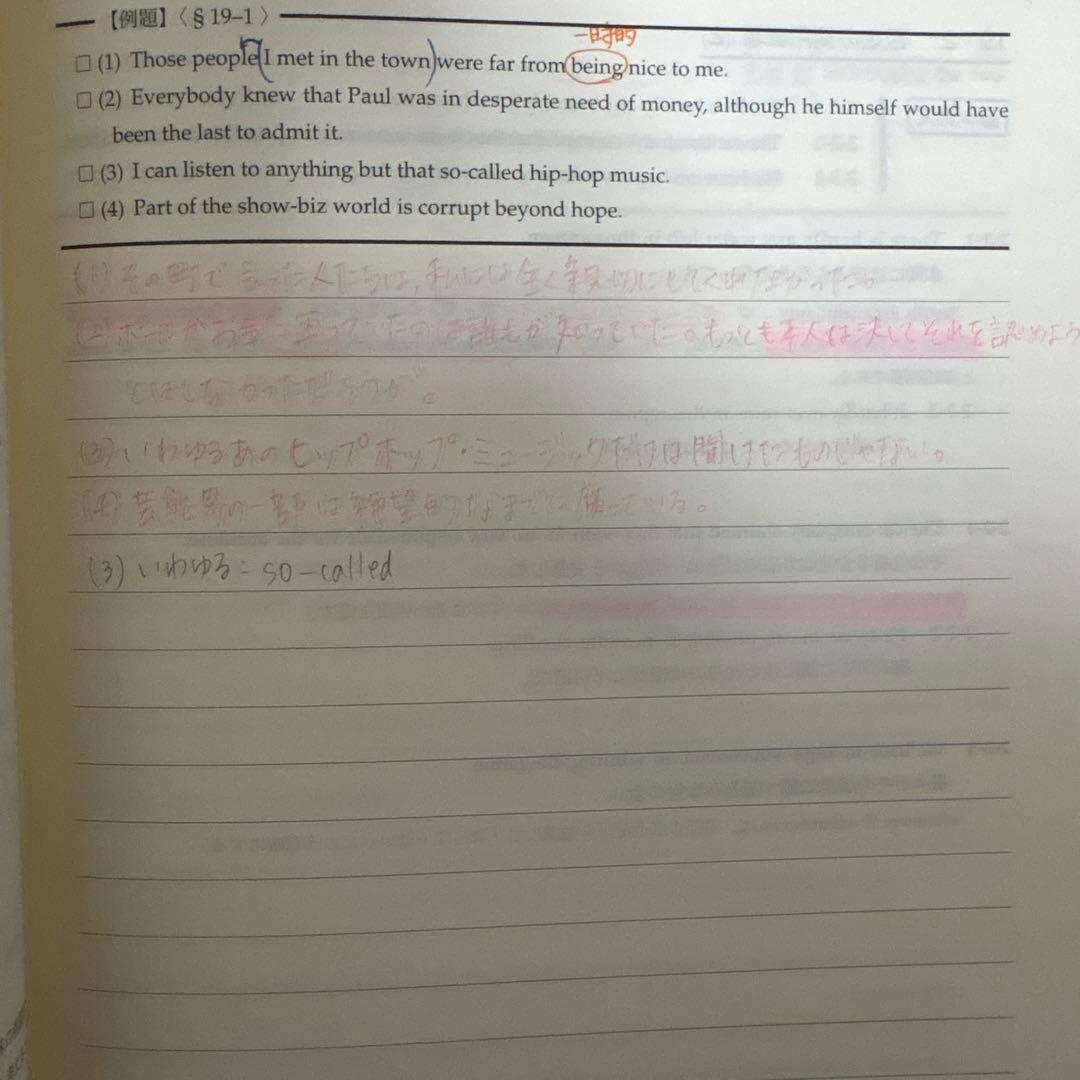 【例題】〈 § 19–1 〉
一時的
□ (1) Those people I met in the town were far from being nice to me.
□ (2) Everybody knew that Paul was in desperate need of money, although he himself would have
been the last to admit it.
□ (3) I can listen to anything but that so-called hip-hop music.
□ (4) Part of the show-biz world is corrupt beyond hope.
(1) その町で会った人たちは、私には全く親切にしてくれなかった。
(2) ポールがお金に困っていたのは誰もが知っていた。もっとも本人は決してそれを認めよう
とはしなかっただろうが。
(3) いわゆるあのヒップホップ・ミュージックだけは聞けたものじゃない。
(4) 芸能界の一部は絶望的なまでに腐っている。
(3) いわゆる : so-called